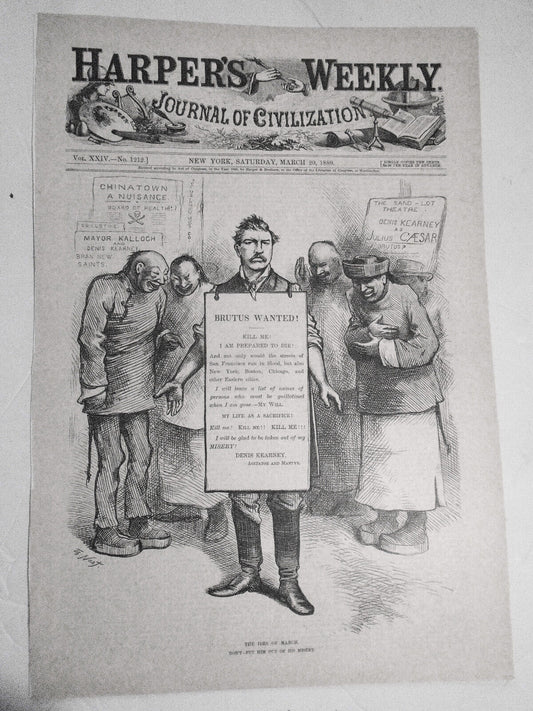 HARPER'S WEEKLY.
JOURNAL OF CIVILIZATION
VOL. XXIV.—NO. 1212.]
NEW YORK, SATURDAY, MARCH 20, 1880.
[SINGLE COPIES TEN CENTS.
$4.00 PER YEAR IN ADVANCE.
Entered according to Act of Congress, in the Year 1880, by Harper & Brothers, in the Office of the Librarian of Congress, at Washington.
CHINATOWN
A NUISANCE
BOARD OF HEALTH(!)
MAYOR KALLOCH
AND
DENIS KEARNEY
BRAN NEW
SAINTS.
THE SAND-LOT
THEATRE
DENIS KEARNEY
AS
JULIUS CÆSAR
BRUTUS?
BRUTUS WANTED!
KILL ME!
I AM PREPARED TO DIE!
And not only would the streets of
San Francisco run in blood, but also
New York, Boston, Chicago, and
other Eastern cities.
I will leave a list of names of
persons who must be guillotined
when I am gone.—MY WILL.
MY LIFE AS A SACRIFICE!
Kill me! KILL ME!! KILL ME!!!
I will be glad to be taken out of my
MISERY!
DENIS KEARNEY,
AGITATOR AND MARTYR.
Th. Nast
THE IDES OF MARCH.
DON'T—PUT HIM OUT OF HIS MISERY.